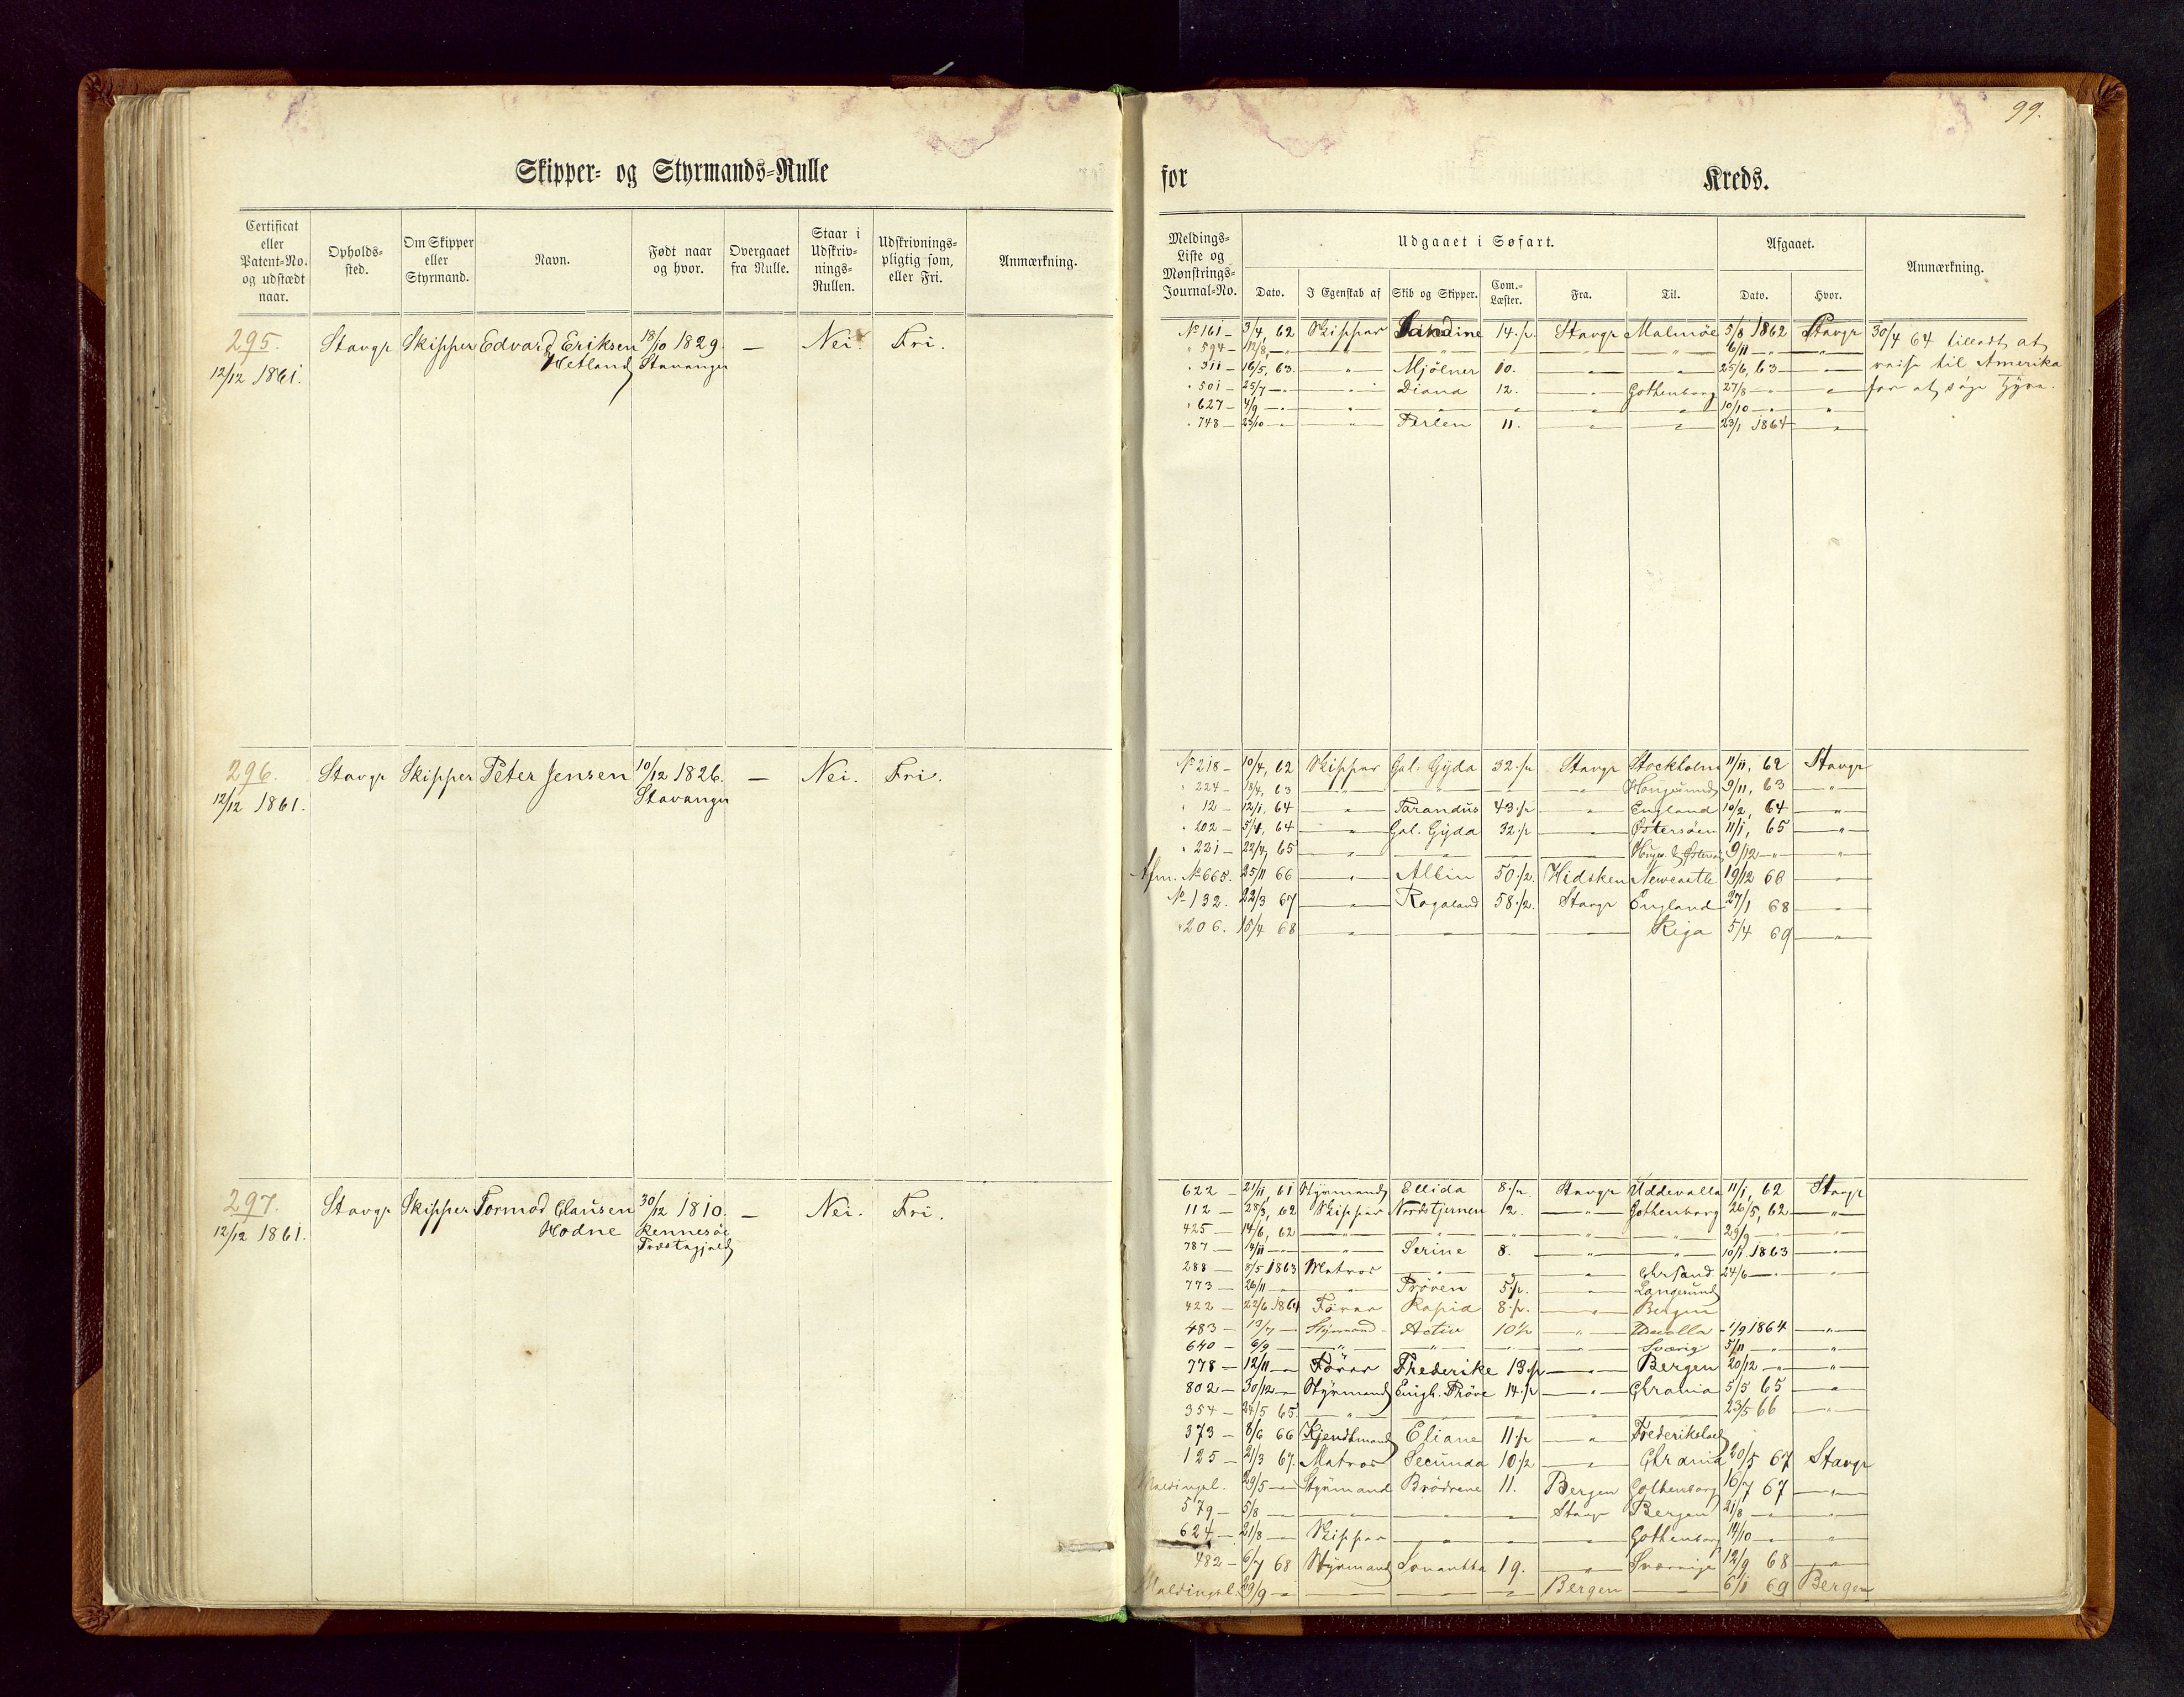 99.
Skipper- og Styrmands-Rulle
for Kreds.
Certificat eller Patent-No. og udstædt naar.
Opholds-sted.
Om Skipper eller Styrmand.
Navn.
Født naar og hvor.
Overgaaet fra Rulle.
Staar i Udskriv-nings-Rullen.
Udskrivnings-pligtig som, eller Fri.
Anmærkning.
Meldings-Liste og Mønstrings-Journal-No.
Udgaaet i Søfart.
Dato.
I Egenskab af
Skib og Skipper.
Com.-Læster.
Fra.
Til.
Afgaaet.
Dato.
Hvor.
Anmærkning.
295. Stavgr Skipper Edvard Eriksen 18/10 1829. — Nei. Fri.
12/12 1861. Hetland Stavanger
No 161 — 3/4, 62 Skipper 14 1/2 Stavgr Malmöe 5/8 1862 Stavgr 30/4 64 tilladt at
" 594 — 12/8 — " — " — 6/11 — " —
" 311 — 16/5, 63 — " — Mjölner 10. — " — " — 25/6, 63 — " — reise til Amerika
" 501 — 25/7 — " — " — Diana 12. — " — Gothenborg 27/8 — " — for at søge Hyre.
" 627 — 4/9 — " — " — " — " — " — " — 10/10 — " — " —
" 748 — 23/10 — " — " — Perlen 11. — " — " — 23/1 1864 — " —
296. Stavgr Skipper Peter Jensen 10/12 1826. — Nei. Fri.
12/12 1861. Stavanger
No 218 — 10/4, 62 Skipper Gal. Gyda 32 1/2 Stavgr Stockholm 11/11, 62 Stavgr
" 224 — 18/4, 63 — " — " — " — 9/11, 63 — " —
" 12 — 12/1, 64 — " — Tarandus 43 1/2 — " — England 10/2, 64 — " —
" 202 — 5/4, 64 — " — Gal. Gyda 32 1/2 — " — Østersöen 11/1, 65 — " —
" 221 — 22/4, 65 — " — " — 9/12 — " — " —
No 665. 25/11 66 — " — Albin 50 1/2 Hidsken Newcastle 19/12 66 — " —
No 132. 22/3 67 — " — Rogaland 58 1/2 Stavgr England 27/1 68 — " —
" 206. 15/4 68 — " — " — Riga 5/4 69 — " —
297. Stavgr Skipper Tormod Clausen 30/12 1810. — Nei. Fri.
12/12 1861. Hodne Rennesöe
Præstegjæld
622 — 21/11, 61 Styrmand Ellida 8 1/2 Stavgr Uddevalla 11/1, 62 Stavgr
112 — 28/3, 62 Skipper Nordstjernen 12. — " — Gothenborg 26/5, 62 — " —
425 — 14/6, 62 — " — " — " — " — 29/9 — " —
787 — 14/11 — " — Serine 8. — " — " — 10/1 1863 — " —
288 — 8/5 1863 Matros — " — " — " — Chrsand. 24/6 — " — " —
773 — 26/11 — " — Pröven 5 1/2 — " — Langesund
422 — 22/6 1864 Förer Rapid 8 1/2 — " — Bergen
483 — 13/7 — Styrmand Activ 10 1/2 — " — 1/9 1864 — " —
640 — 6/9 — " — " — " — Sverig 5/11 — " —
778 — 12/11 — Förer Frederike 13 1/2 — " — Bergen 20/12 — " — " —
802 — 30/12 — Styrmand Enigh. Pröve 14 1/2 — " — Chrania 5/5 65 — " —
354 — 24/5 65. — " — 23/5 66 — " —
373 — 8/6 66 Kjendtmand Eliane 11 1/2 — " — Frederikshald
125 — 21/3 67. Matros Secunda 10 1/2 — " — Chrania 20/5 67 Stavgr
Meldingsl. 29/5 — Styrmand Brödrene 11. Bergen Gothenborg 16/7 67 — " —
579 — 5/8 — " — Stavgr Bergen 21/8 — " — " —
624 — 21/8 — Skipper — " — Gothenborg 14/10 — " —
482 — 6/7 68 Styrmand Samantha 19. — " — Sverrige 12/9 68 — " —
Meldingsl. 29/9 — " — Bergen — 6/1 69 Bergen